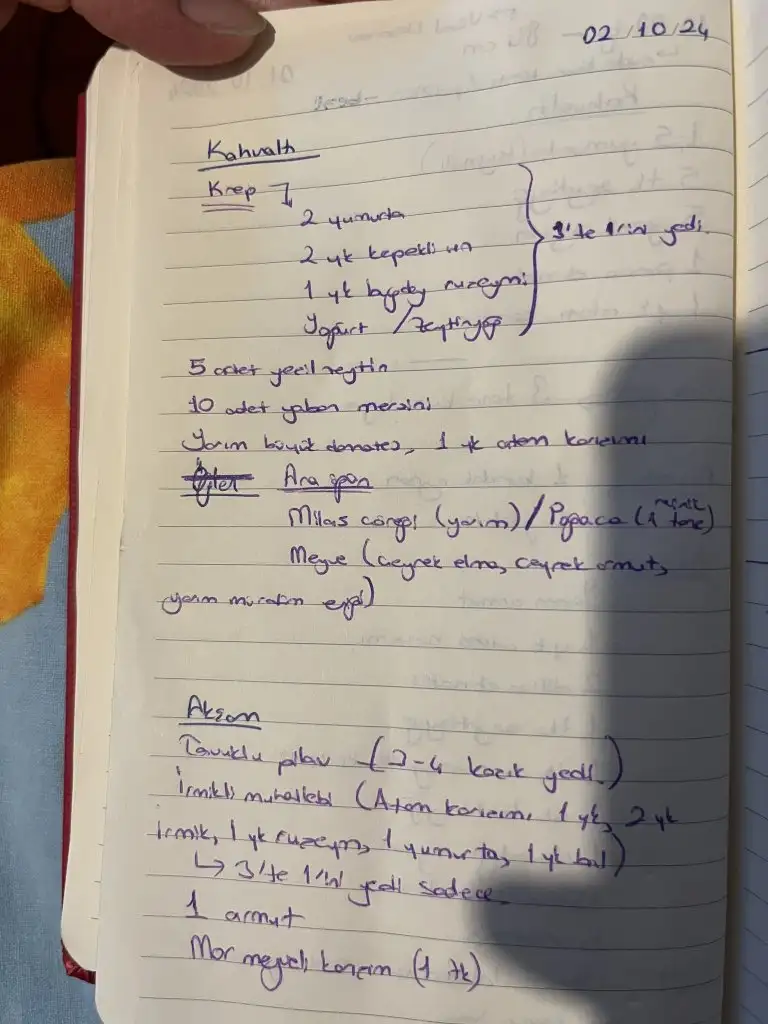 02/10/24
Kahvaltı
Krep
2 yumurta
2 yk kepekli un
1 yk buğday ruzeymi
Yoğurt / Zeytinyağı
3'te 1'ini yedi.
5 adet yeşil zeytin
10 adet yaban mersini
Yarım büyük domates, 1 tk atom karışımı
Öğlen Ara öğün
Milas çöreği (yarım) / Poğaça (1 minik tane)
Meyve (çeyrek elma, çeyrek armut,
yarım mürdüm eriği)
Akşam
Tavuklu pilav (3-4 kaşık yedi.)
İrmikli muhallebi (Atom karışımı 1 yk, 2 yk
irmik, 1 yk ruzeym, 1 yumurta, 1 yk bal)
↳ 3'te 1'ini yedi sadece.
1 armut
Mor meyveli karışım (1 tk)